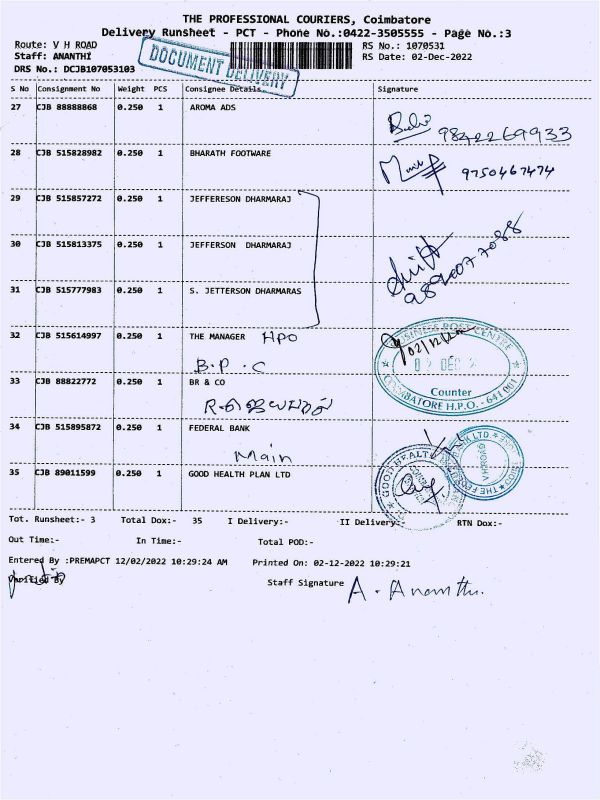 THE PROFESSIONAL COURIERS, Coimbatore
Delivery Runsheet - PCT - Phone No.:0422-3505555 - Page No.:3
Route: V H ROAD
RS No.: 1070531
Staff: ANANTHI
RS Date: 02-Dec-2022
DRS No.: DCJB107053103
DOCUMENT DELIVERY
S No Consignment No Weight PCS Consignee Details Signature
27 CJB 88888868 0.250 1 AROMA ADS
9842269933
28 CJB 515828982 0.250 1 BHARATH FOOTWARE
9750467474
29 CJB 515857272 0.250 1 JEFFERESON DHARMARAJ
30 CJB 515813375 0.250 1 JEFFERSON DHARMARAJ
31 CJB 515777983 0.250 1 S. JETTERSON DHARMARAS
32 CJB 515614997 0.250 1 THE MANAGER HPO
B.P.C
BUSINESS POST CENTRE
Counter
COIMBATORE H.P.O. - 641 001
33 CJB 88822772 0.250 1 BR & CO
34 CJB 515895872 0.250 1 FEDERAL BANK
Main
V.H.ROAD
35 CJB 89011599 0.250 1 GOOD HEALTH PLAN LTD
GOOD HEALTH
Tot. Runsheet:- 3 Total Dox:- 35 I Delivery:- II Delivery:- RTN Dox:-
Out Time:- In Time:- Total POD:-
Entered By :PREMAPCT 12/02/2022 10:29:24 AM Printed On: 02-12-2022 10:29:21
Verified By
Staff Signature A. Ananthi.